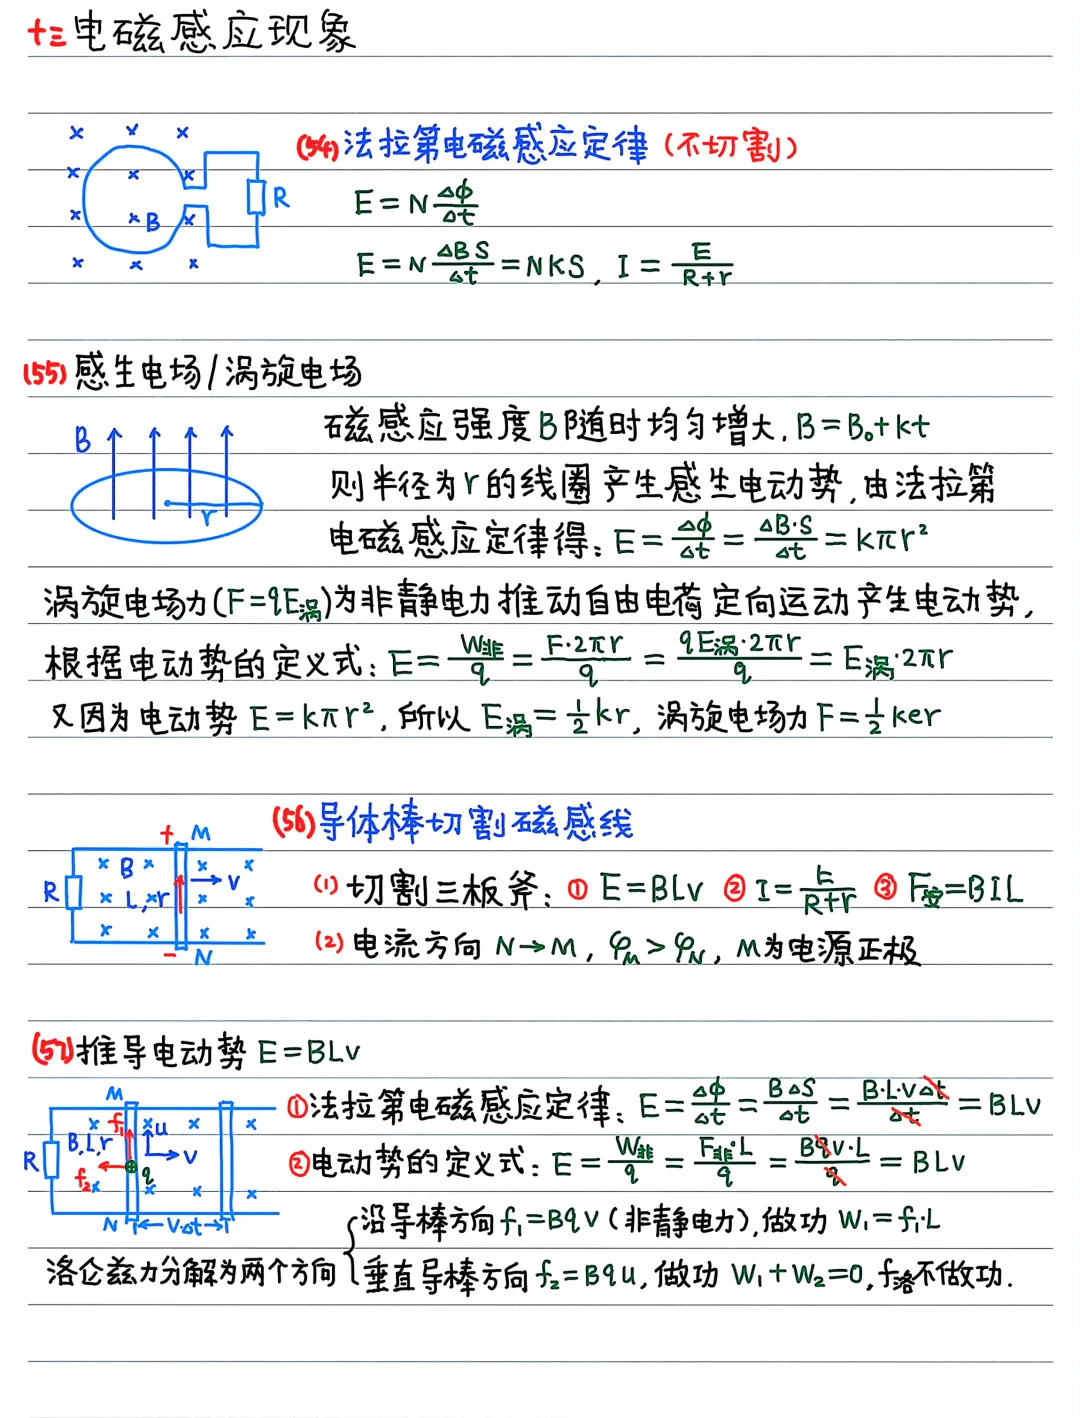 十三 电磁感应现象
× × ×
(54) 法拉第电磁感应定律 (不切割)
× × ×
R
E=NΔϕ/Δt
× ×B ×
E=NΔBS/Δt=NKS, I=E/(R+r)
× × ×
(55) 感生电场/涡旋电场
磁感应强度B随时均匀增大, B=B₀+kt
B
则半径为r的线圈产生感生电动势,由法拉第
r
电磁感应定律得: E=Δϕ/Δt=ΔB·S/Δt=kπr²
涡旋电场力(F=qE涡)为非静电力推动自由电荷定向运动产生电动势,
根据电动势的定义式: E=W非/q=F·2πr/q=qE涡·2πr/q=E涡·2πr
又因为电动势E=kπr², 所以E涡=½kr, 涡旋电场力F=½ker
(56) 导体棒切割磁感线
+ M
× B × × ×
R × L,r × × → v
(1) 切割三板斧: ① E=BLv ② I=E/(R+r) ③ F安=BIL
× × × ×
- N
(2) 电流方向 N→M, φM>φN, M为电源正极
(57) 推导电动势 E=BLv
M
① 法拉第电磁感应定律: E=Δϕ/Δt=BΔS/Δt=B·L·vΔt/Δt=BLv
× f₁ × u × ×
B,L,r v
R
② 电动势的定义式: E=W非/q=F非·L/q=Bqv·L/q=BLv
f₂ × q × × ×
N ←V·Δt→
沿导棒方向f₁=Bqv(非静电力),做功 W₁=f₁·L
洛仑兹力分解为两个方向
垂直导棒方向f₂=Bqu, 做功 W₁+W₂=0, f洛不做功.